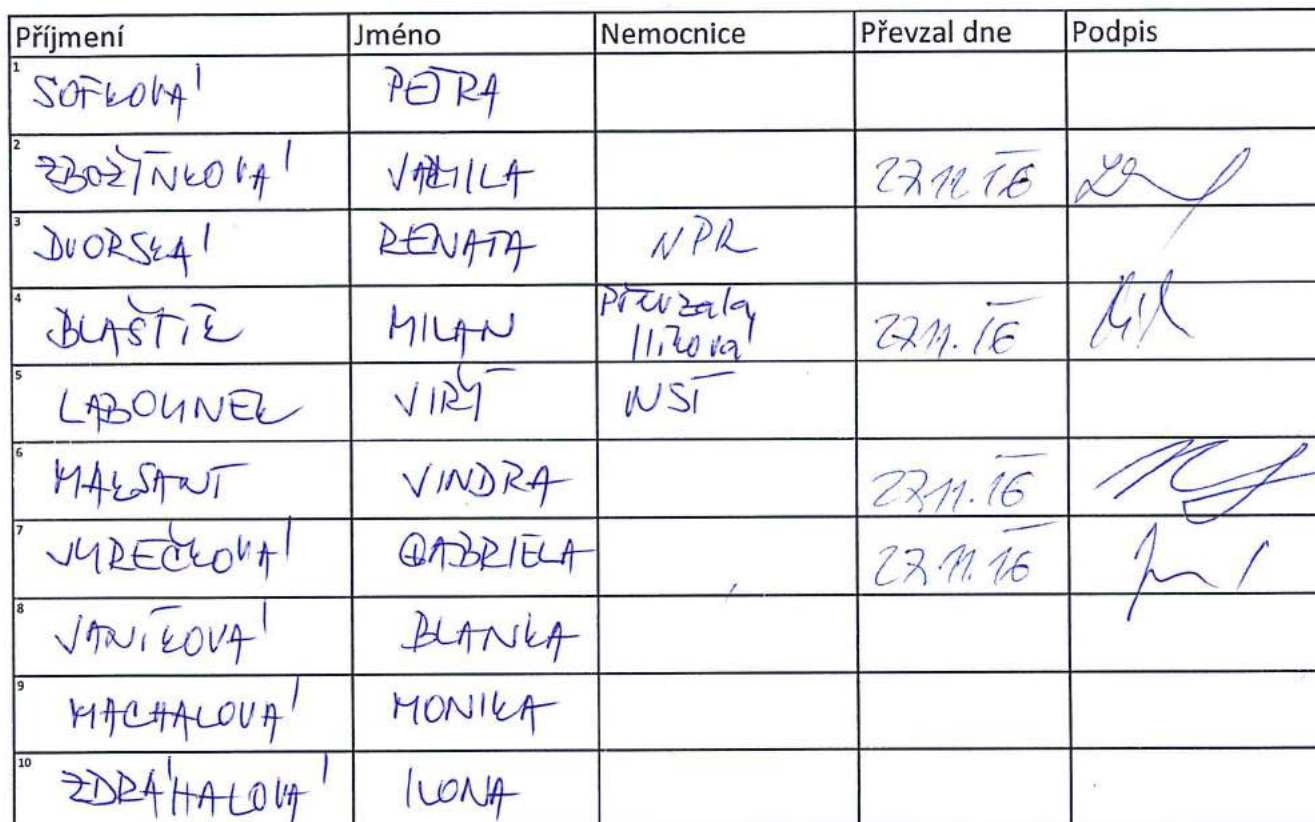 Příjmení Jméno Nemocnice Převzal dne Podpis
1 SOFKOVÁ PETRA
2 ZBOŽÍNKOVÁ 27.11.16
3 DVORSKÁ RENATA NPR
4 BLAŠTÍK MILAN Převzala 27.11.16
Ilíková
5 LABOUNEK JIŘÍ
6 MAKSANT JINDRA 27.11.16
7 JUREČKOVÁ GABRIELA 27.11.16
8 JANÍKOVÁ BLANKA
9 MACHALOVÁ MONIKA
10 ZDRÁHALOVÁ ILONA